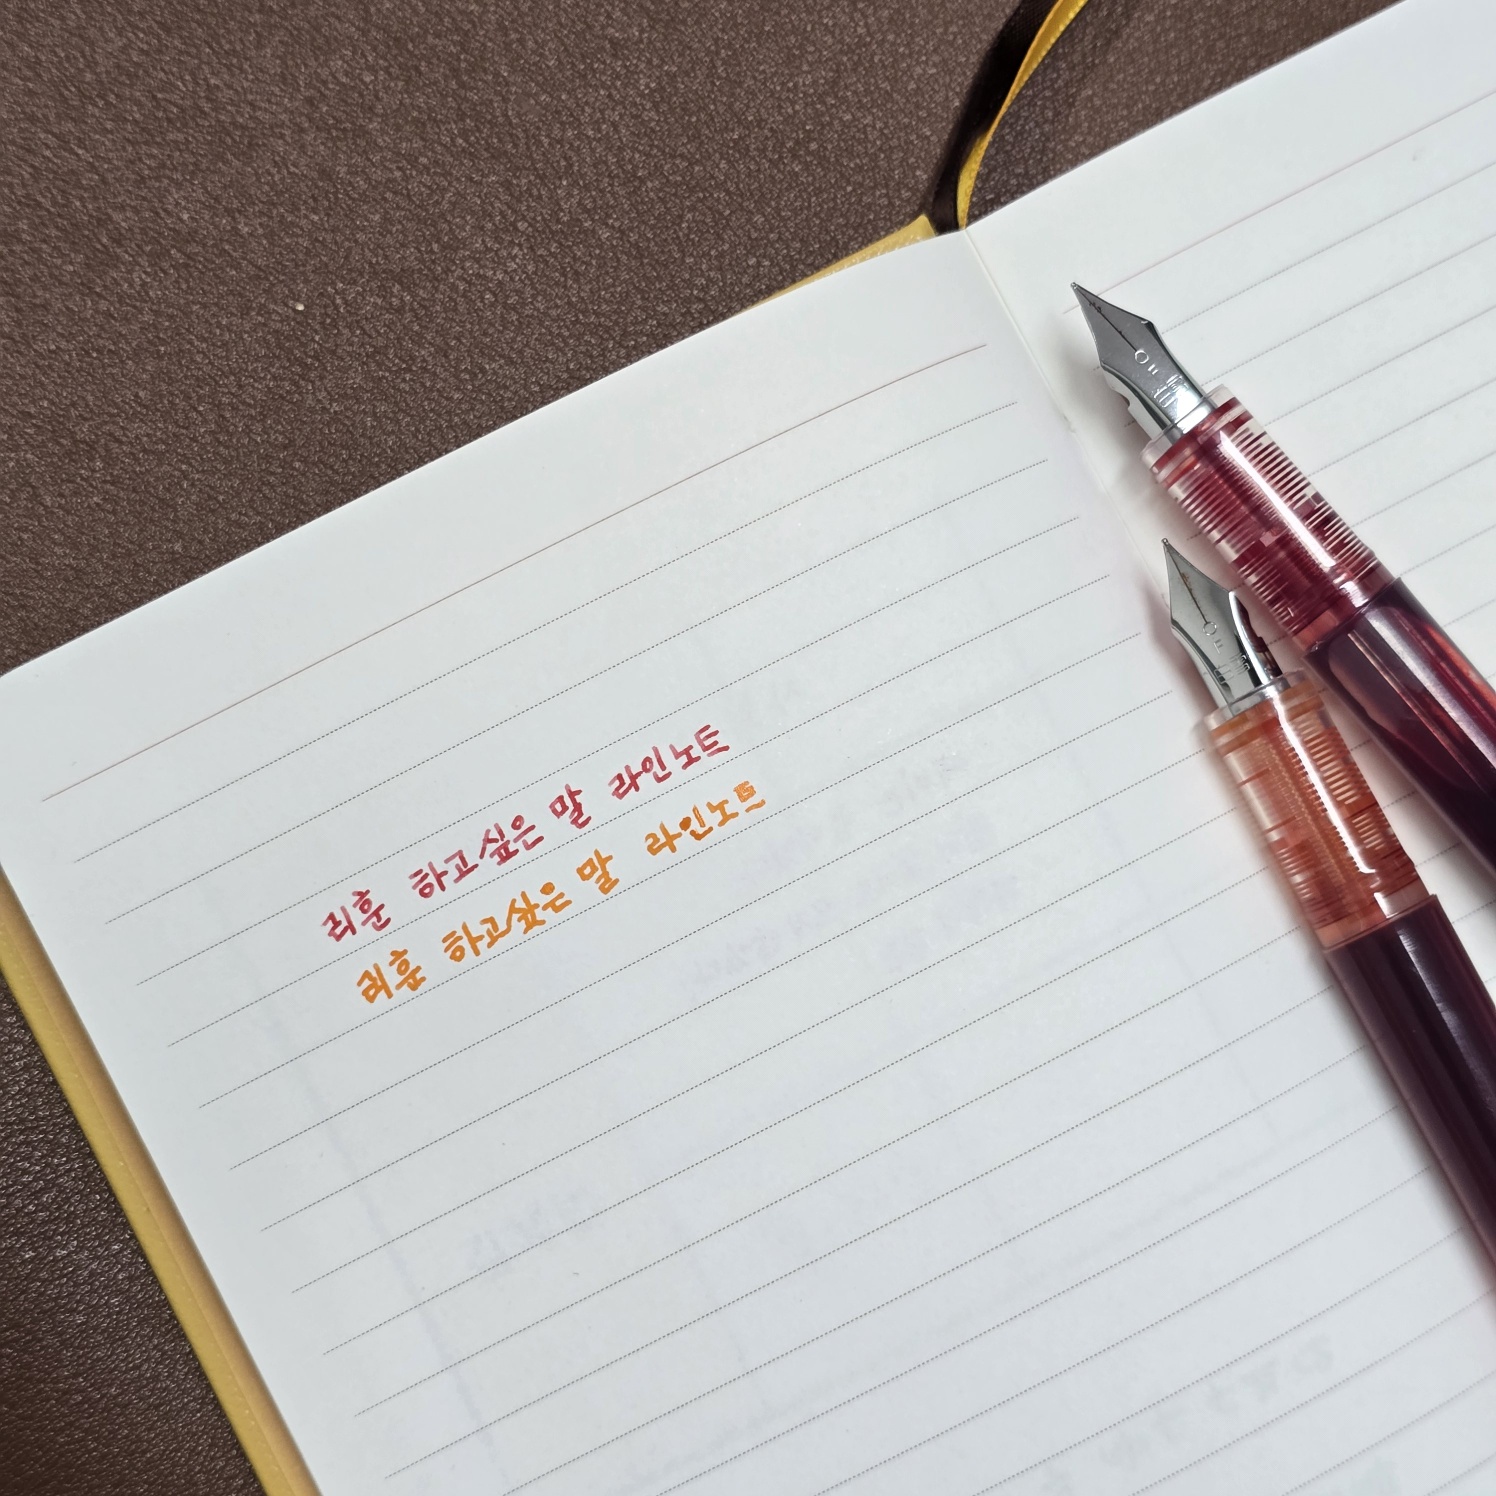 리훈 하고싶은 말 라인노트
리훈 하고싶은 말 라인노트